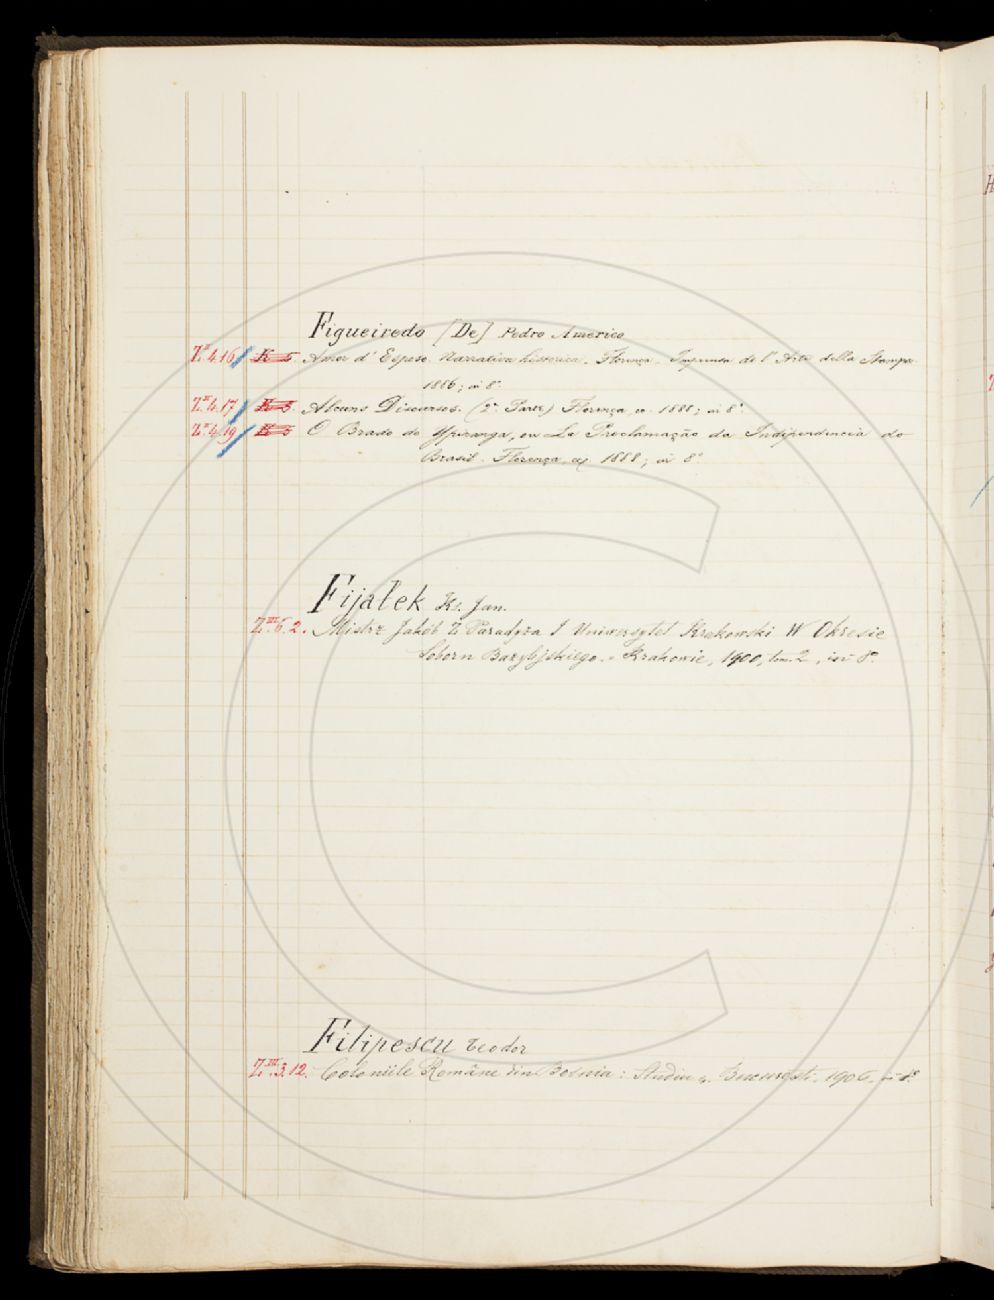 Figueiredo [De] Pedro Americo
Z.II.4.16 K 5 Amor d' Esposo. Narrativa historica. Florença. Imprensa de l' Arte della Stampa
1886; in 8°.
Z.II.4.17 K 5. Alcuns Discursos. (1ª Parte) Florença, 1888; in 8°.
Z.II.4.19 K 5 O Brado do Ypiranga, ou La Proclamação da Indipendencia do
Brasil. Florença, 1888; in 8°.
Fijałek Ks. Jan.
Z.III.6.2. Mistrz Jakób Z Paradyża I Uniwersytet Krakowski W Okresie
Soboru Bazylejskiego. Krakowie, 1900, tom. 2, in 8°.
Filipescu Teodor
Z.III.3.12. Coloniile Române din Bosnia: Studiu Bucuresti. 1906. in 8°.
C